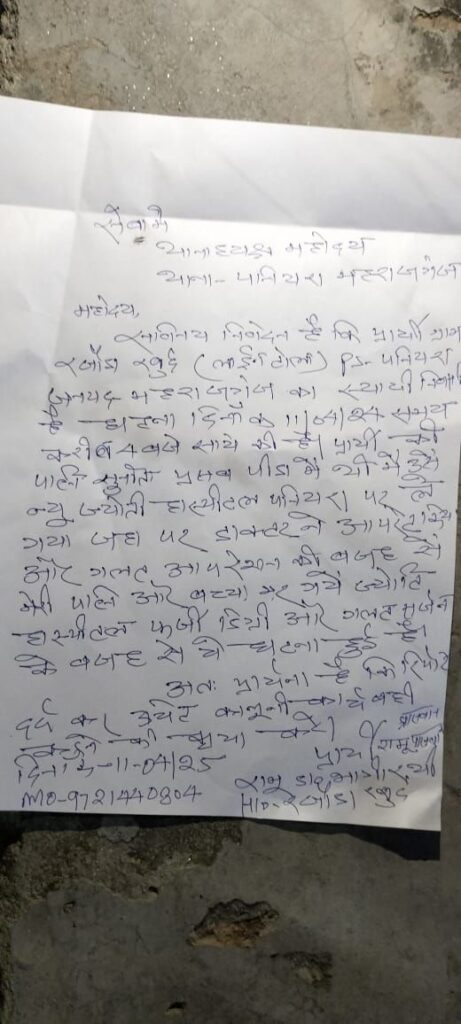 सेवामे
थानाध्यक्ष महोदय
थाना- पनियरा महराजगंज
महोदय,
सविनय निवेदन है कि प्रार्थी ग्राम
रजौडा खुर्द (लाईन टोला) PS- पनियरा
जनपद महराजगंज का स्थायी निवासी
है घटना दिनांक 11/04/24 समय
करीब 4 बजे सायं की है। प्रार्थी की
पत्नि सुनीता प्रसव पीडा मे थी मै उसे
न्यू ज्योती हास्पीटल पनियरा पर ले
गया जहा पर डाक्टर ने आपरेशन किया
और गलत आपरेशन की वजह से
मेरी पत्नि और बच्चा मर गये ज्योति
हास्पीटल फर्जी डिग्री और गलत सर्जन
के वजह से ये घटना हुई है।
अतः प्रार्थना है कि रिपोर्ट
दर्ज कर उचित कानूनी कार्यवाही
करने की कृपा करे।
दिनांक-11-04/25 प्रार्थी
MO-9721440804
रजौडा खुर्द